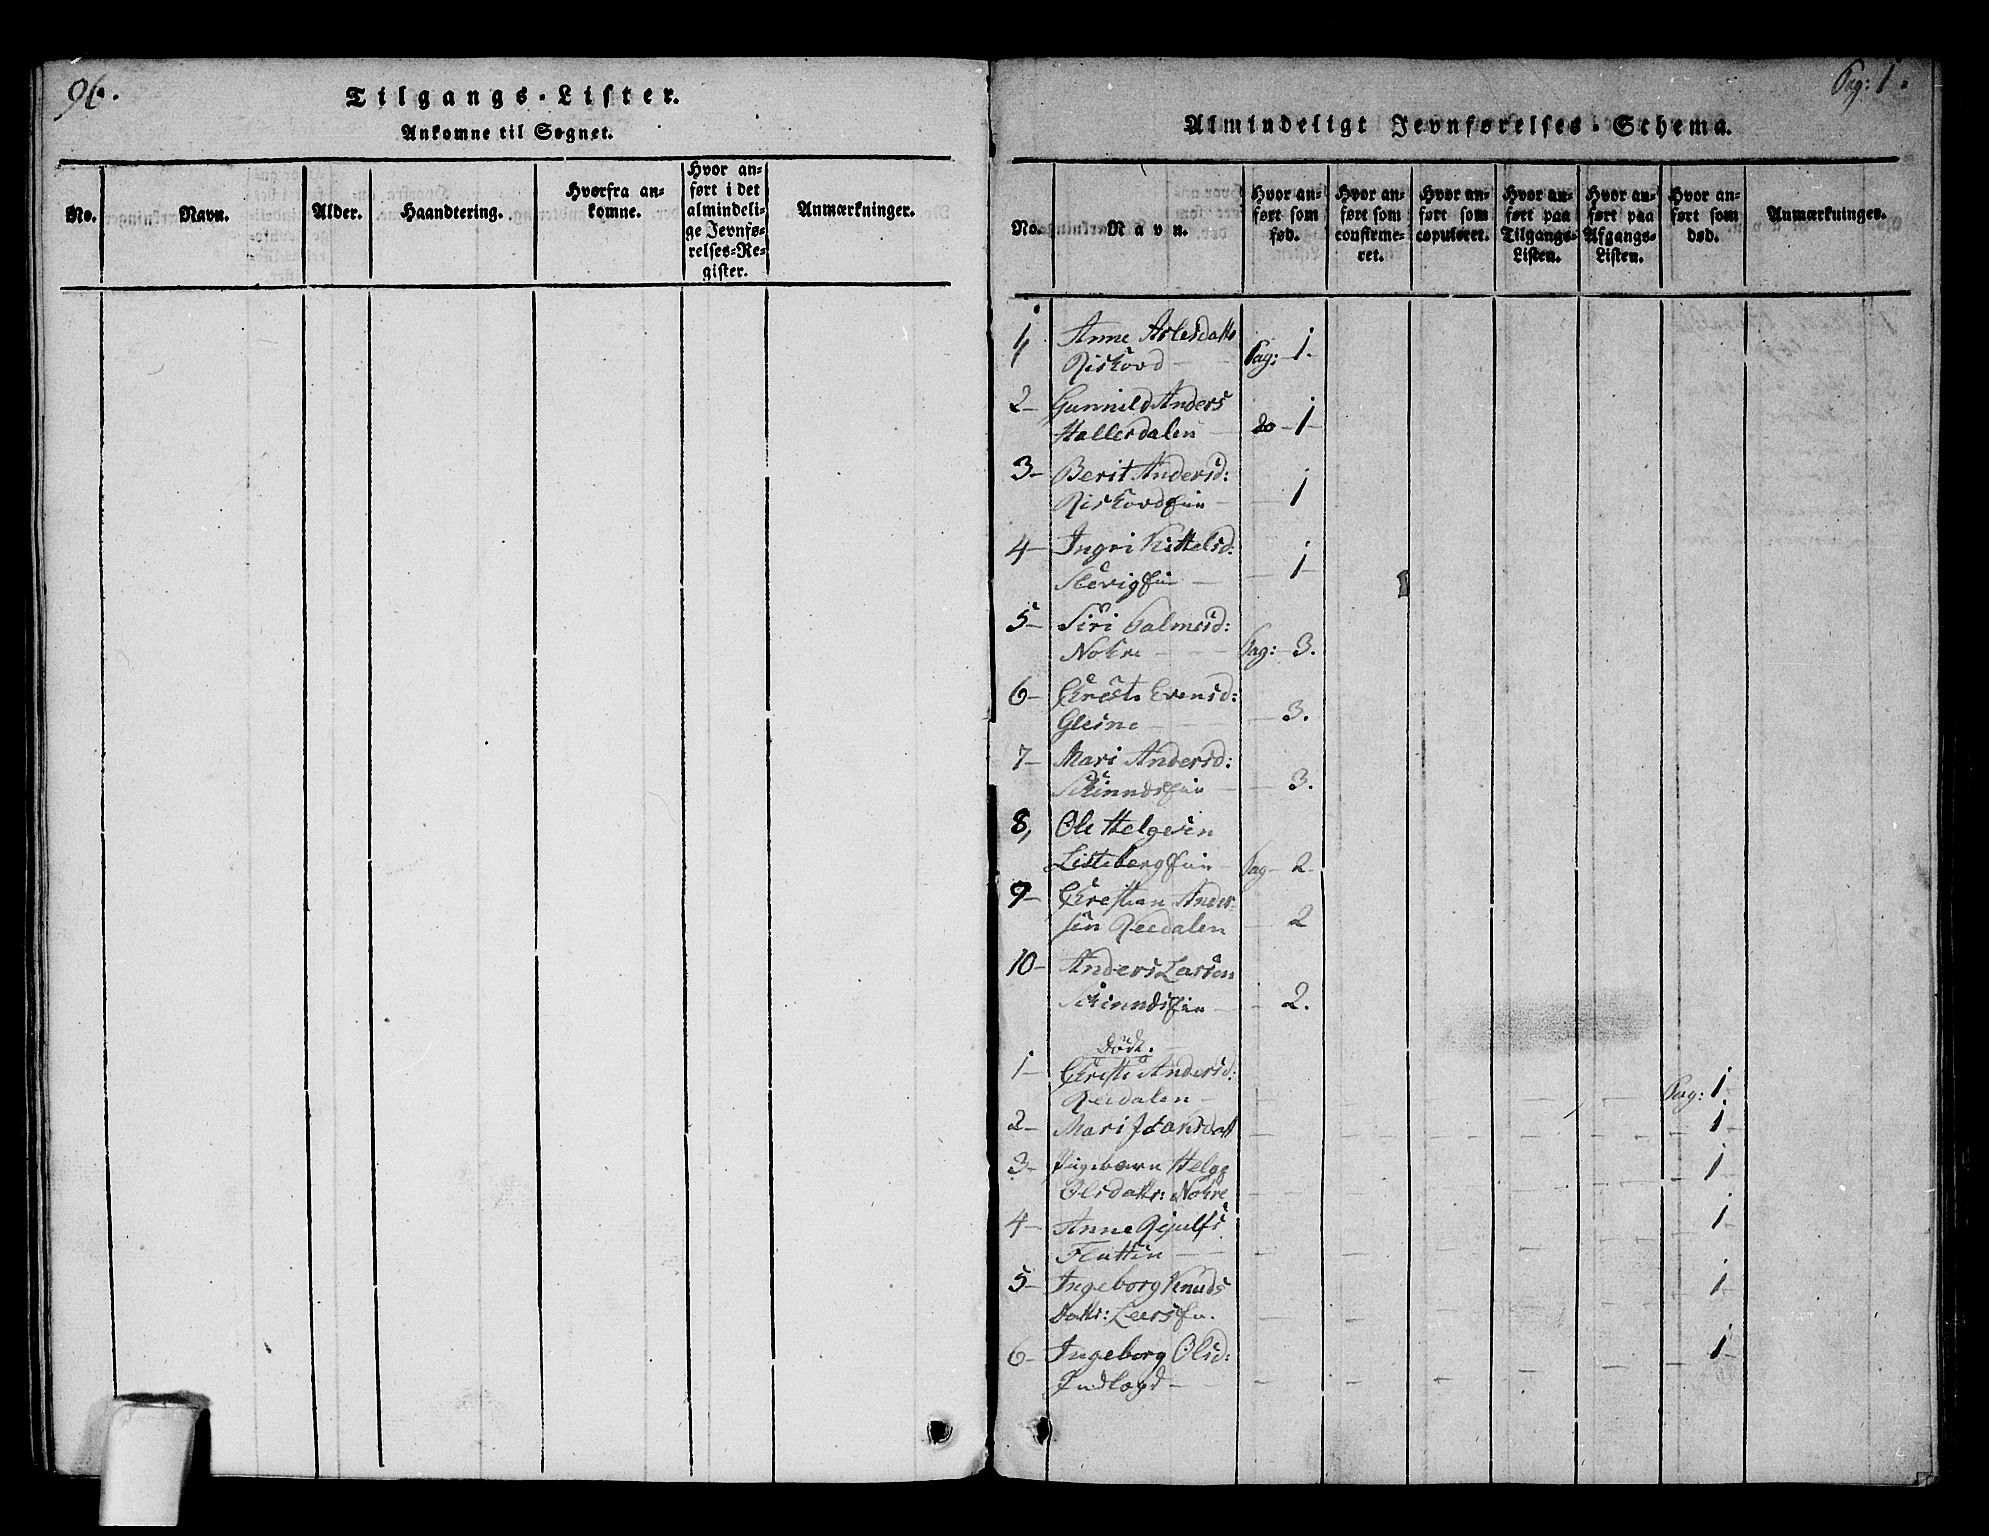 96.
Tilgangs-Lister.
Ankomne til Sognet.
No.
Navn.
Alder.
Haandtering.
Hvorfra an-
komne.
Hvor an-
ført i det
almindeli-
ge Jevnfø-
relses-Re-
gister.
Anmærkninger.
Pag: 1.
Almindeligt Jevnførelses-Schema.
No.
Navn.
Hvor an-
ført som
fød.
Hvor an-
ført som
confirme-
ret.
Hvor an-
ført som
copuleret.
Hvor an-
ført paa
Tilgangs-
Listen.
Hvor an-
ført paa
Afgangs-
Listen.
Hvor an-
ført som
død.
Anmærkninger.
1 Anne Aslesdatt
Riskovd — Pag: 1.
2 Gunnild Anders
Hallesdalen — do 1
3 Berit Andersd:
— 1
4 Ingri Kittelsd:
— 1
5 Siri Palmesd:
Nohre — Pag: 3.
6 Christi Evensd:
Glesne — 3.
7 Mari Andersd:
— 3.
8, Ole Helgesen
Pag 2
9 Christian Ander-
sen Reedalen — 2
10 Anders Larsen
— 2.
Döde.
1 Christi Andersd:
Reedalen — Pag: 1.
2 Mari — 1
3 Helge
Olsdattr: Nohre — 1
4 Anne
Flatten — 1
5 Ingeborg Knuds
Dattr: — 1
6 Ingeborg Olsd:
Indlagd — 1